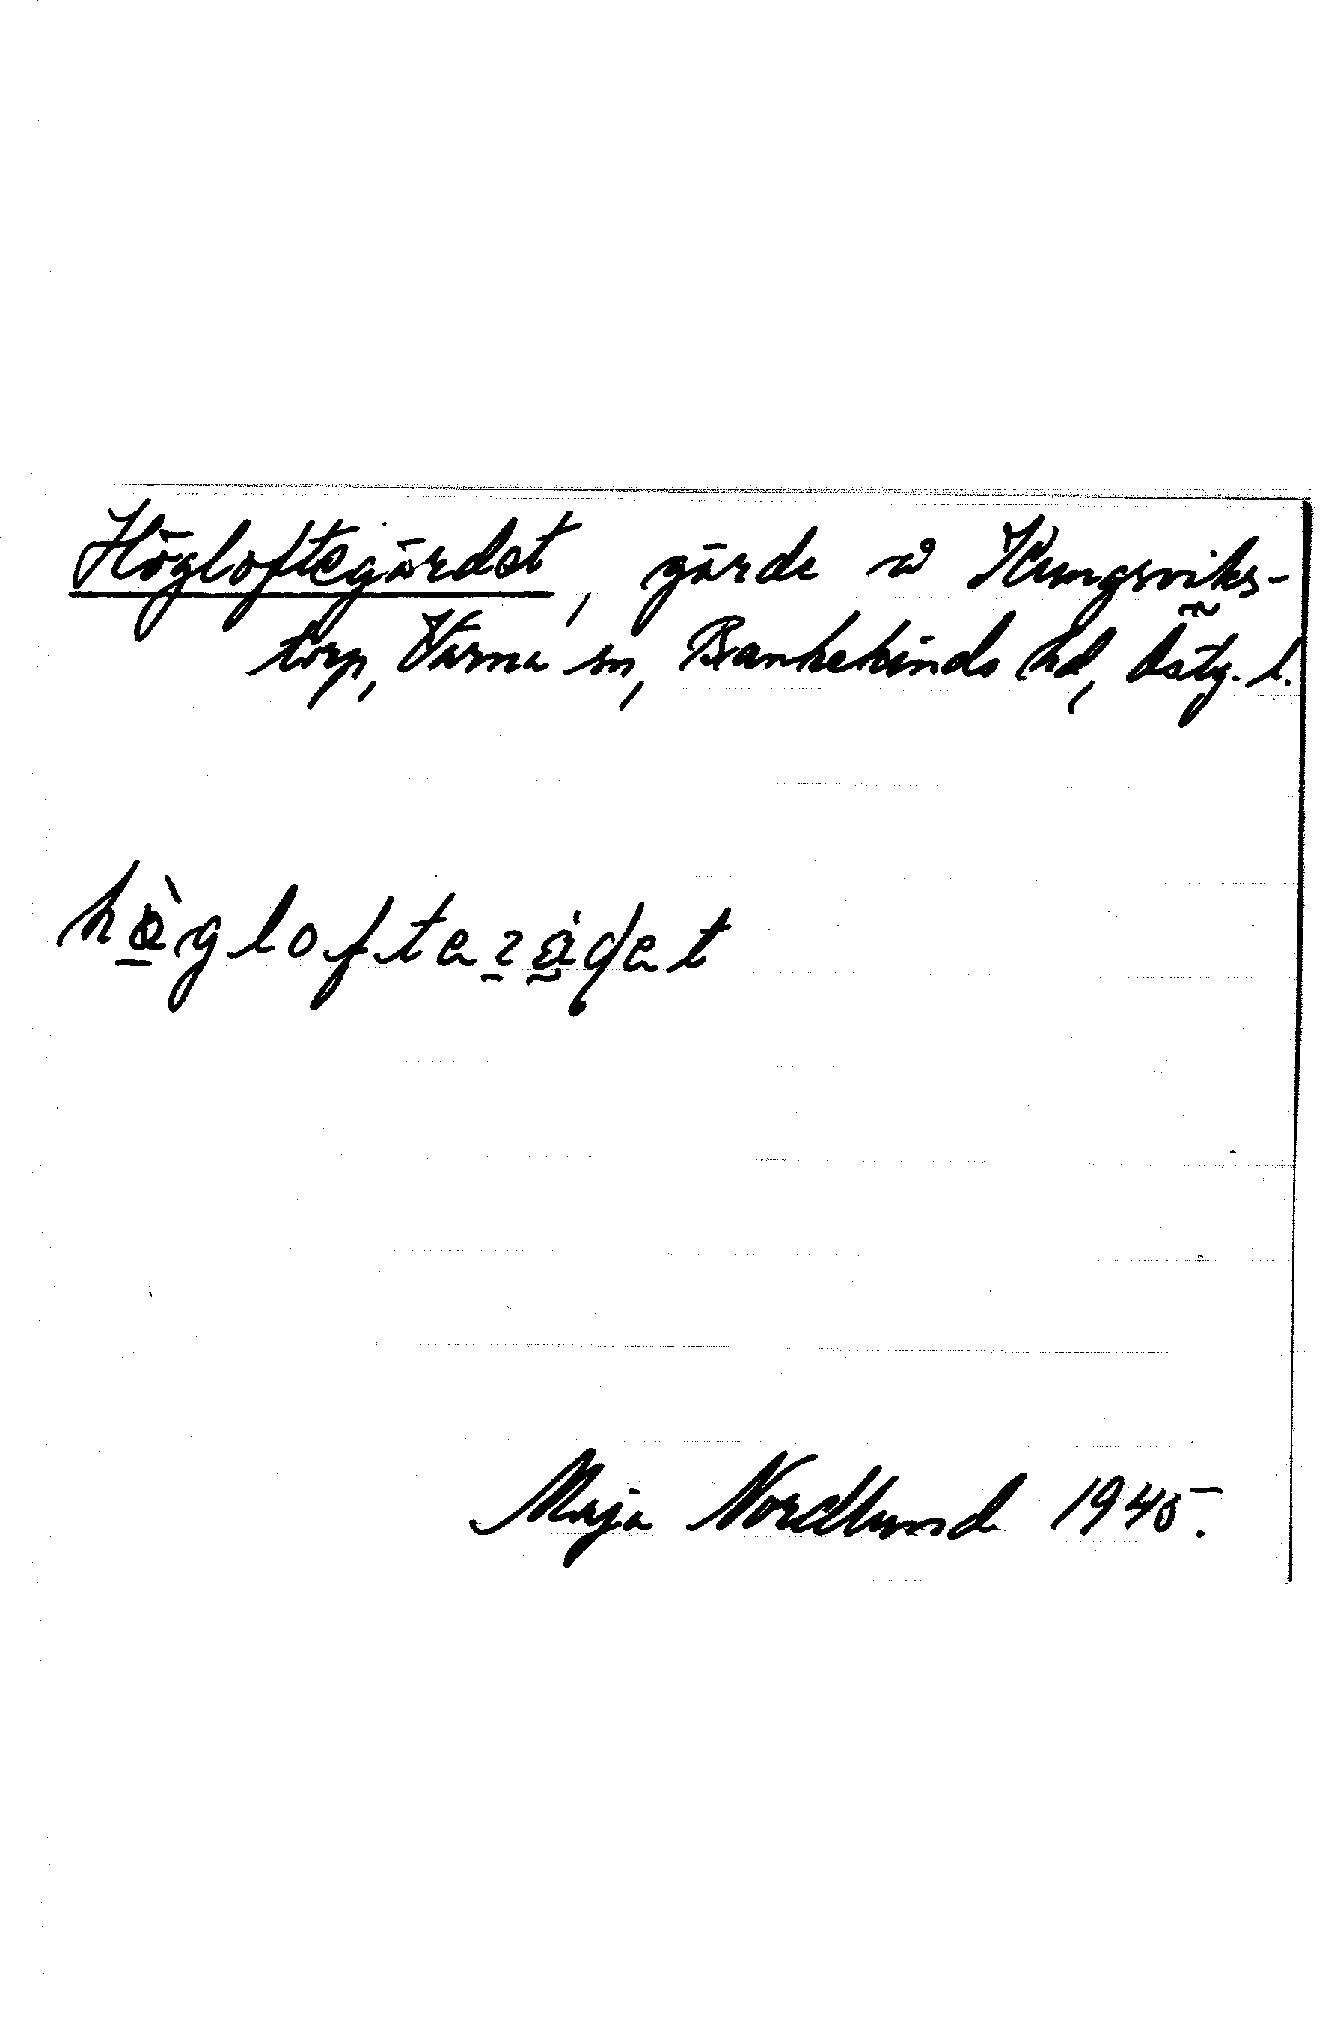 Högloftegärdet, gärde å Kungsviks-
torp, Värna sn, Bankekinds hd, Östg. l.
hö̀glofteɀådet
Maja Nordlund 1945.